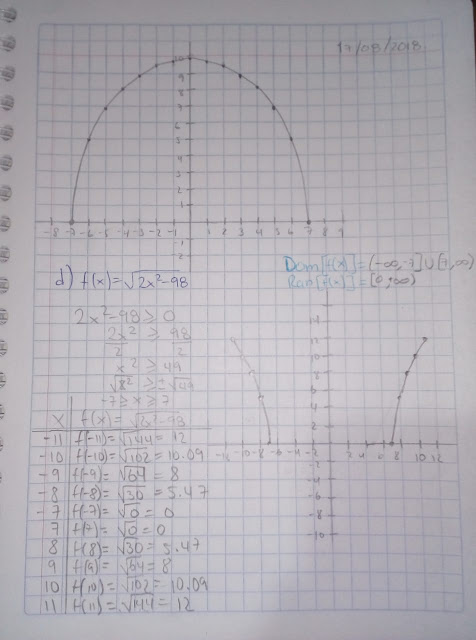 19/08/2018
10
9
8
7
6
5
4
3
2
1
-8 -7 -6 -5 -4 -3 -2 -1 1 2 3 4 5 6 7 8 9
-1
-2
d) f(x)=√2x²-98
Dom[f(x)]=(-∞,-7]∪[7,∞)
Ran[f(x)]=[0,∞)
2x²-98≥0
2x² ≥ 98
2 2
x² ≥ 49
√x² ≥ ±√49
-7≥x≥7
x f(x)=√2x²-98
-11 f(-11)=√144=12
-10 f(-10)=√102=10.09
-9 f(-9)=√64=8
-8 f(-8)=√30=5.47
-7 f(-7)=√0=0
7 f(7)=√0=0
8 f(8)=√30=5.47
9 f(9)=√64=8
10 f(10)=√102=10.09
11 f(11)=√144=12
14
12
10
8
6
4
2
-12 -10 -8 -6 -4 -2 2 4 6 8 10 12
-2
-4
-6
-8
-10